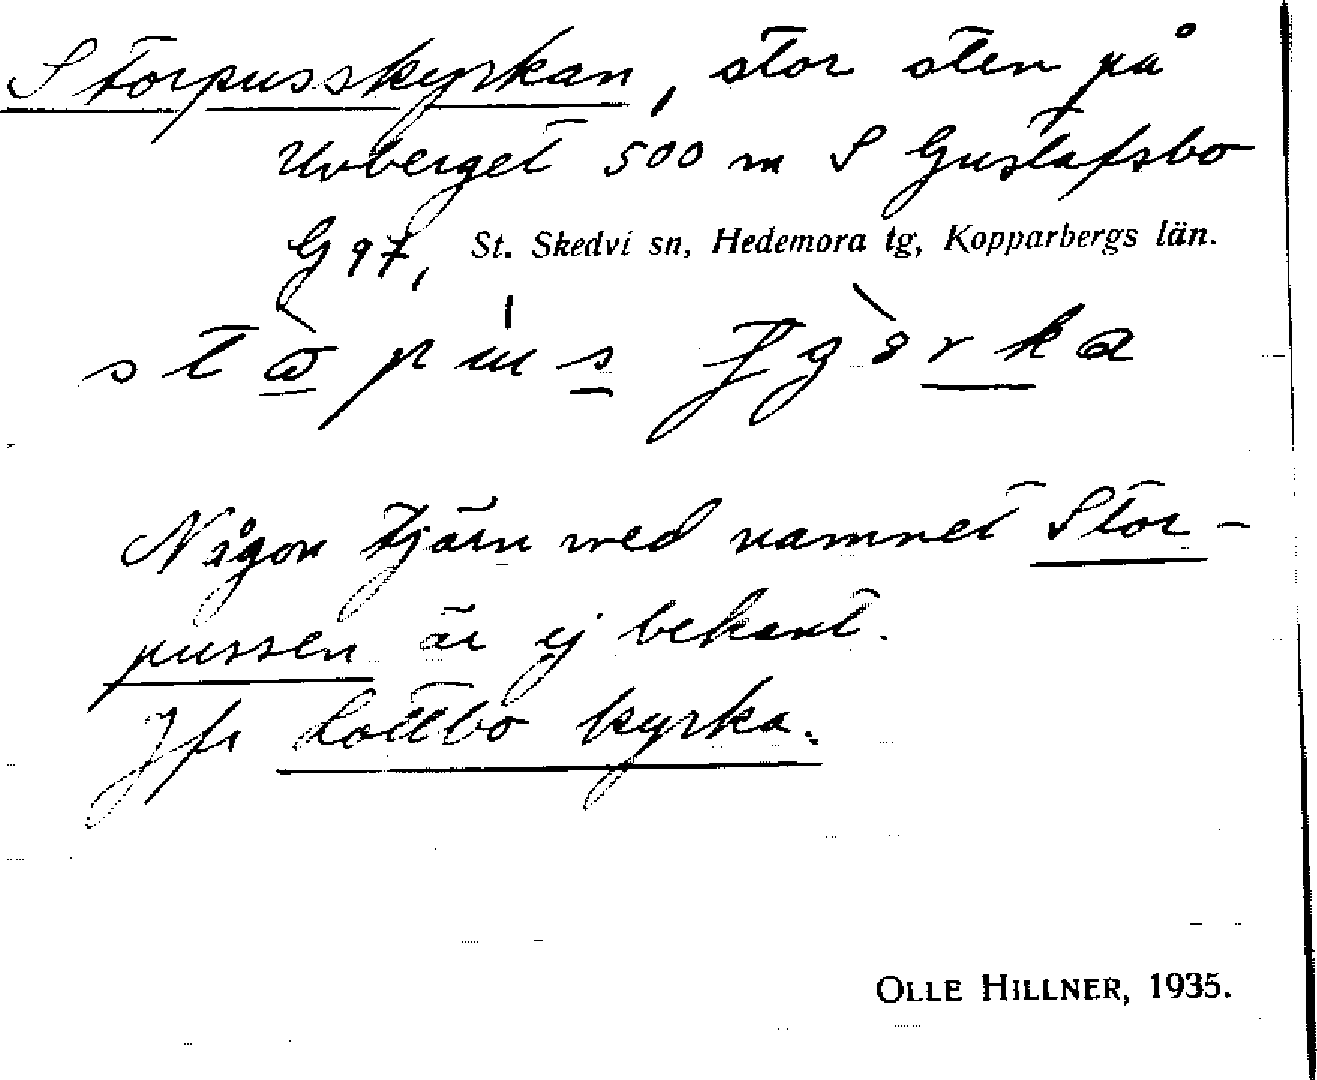 Storpusskyrkan, stor sten på
Uvberget 500 m S Gustafsbo
G 97, St. Skedvi sn, Hedemora tg, Kopparbergs län.
Någon tjärn med namnet Stor-
pussen är ej bekant.
Jfr Lottbo kyrka.
OLLE HILLNER, 1935.